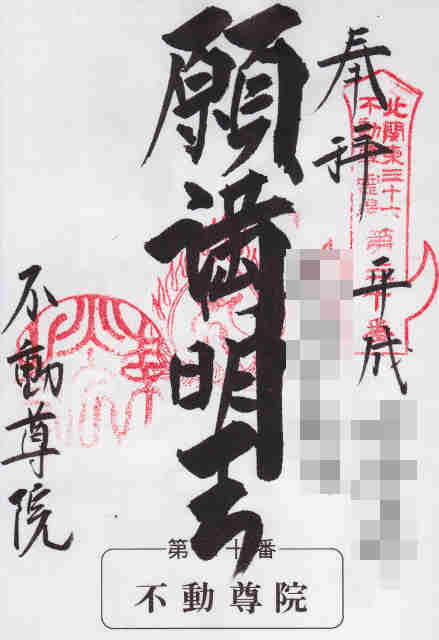 奉拝
平成
願満明王
不動尊院
北関東三十六
不動尊霊場
第 十番
第 十番
不動尊院